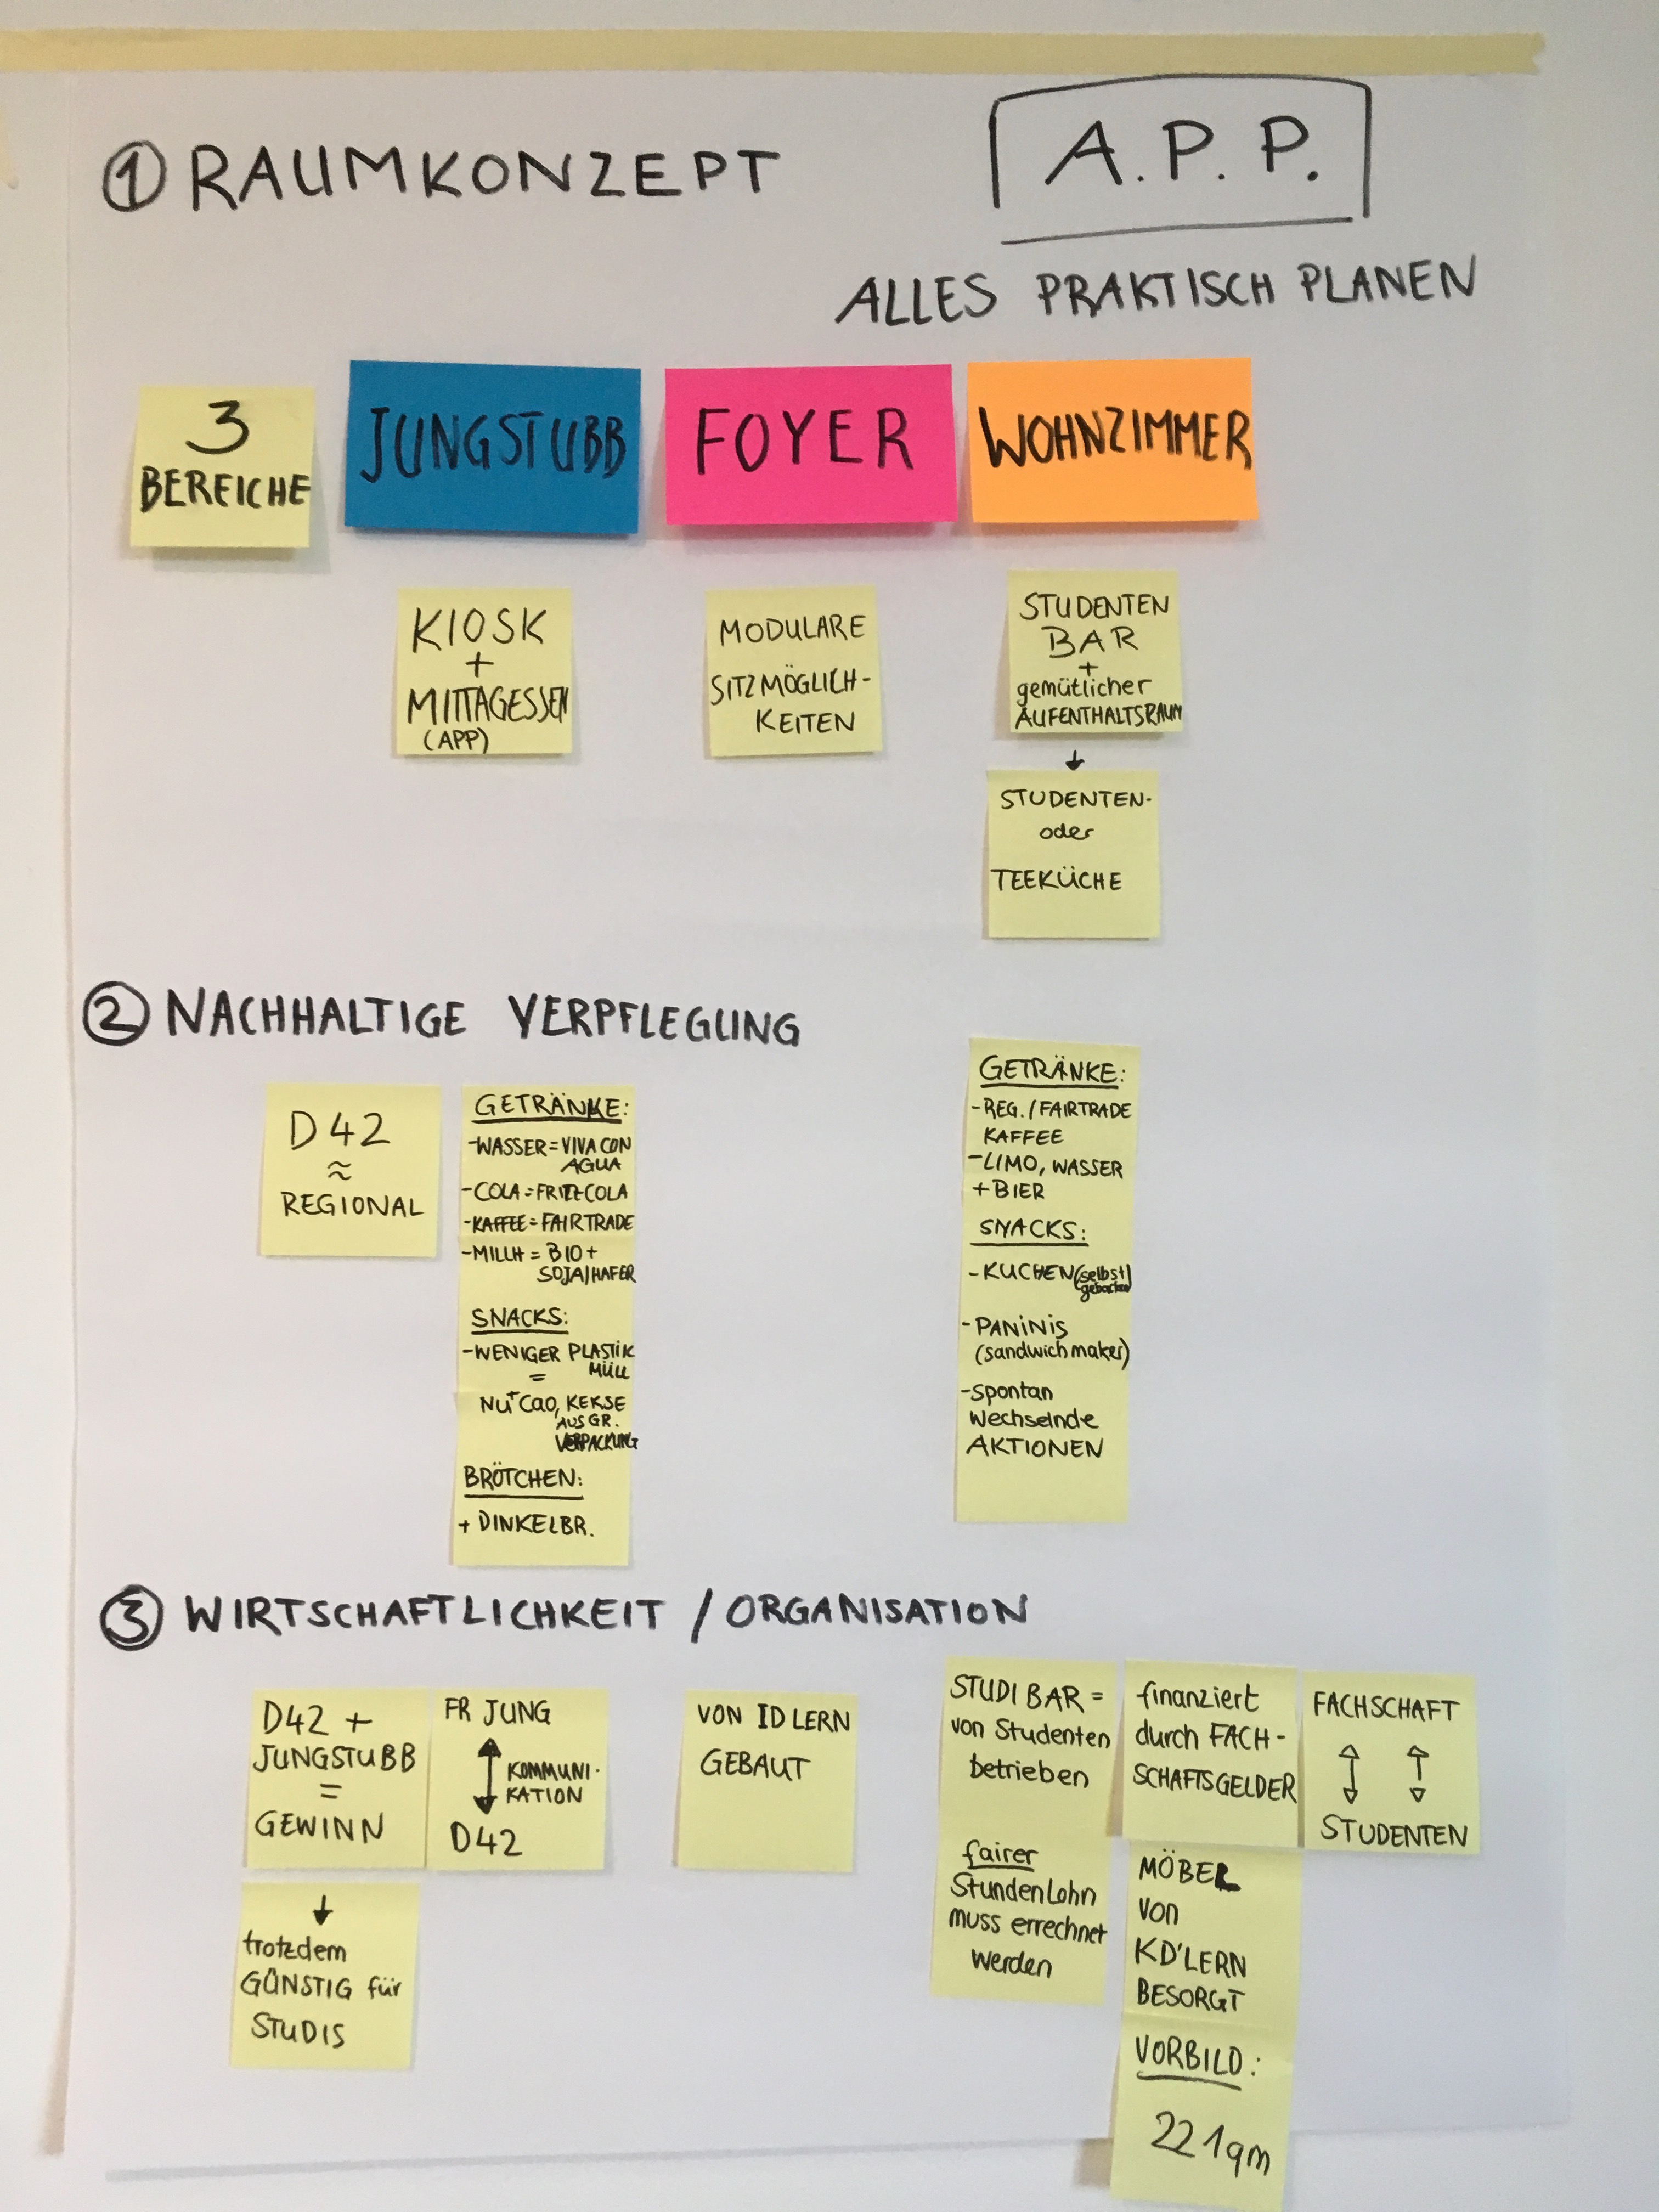 ① RAUMKONZEPT
A.P.P.
ALLES PRAKTISCH PLANEN
3
BEREICHE
JUNGSTUBB
FOYER
WOHNZIMMER
KIOSK
+
MITTAGESSEN
(APP)
MODULARE
SITZMÖGLICH-
KEITEN
STUDENTEN
BAR
+
gemütlicher
AUFENTHALTSRAUM
↓
STUDENTEN-
oder
TEEKÜCHE
② NACHHALTIGE VERPFLEGUNG
D42
≈
REGIONAL
GETRÄNKE:
-WASSER=VIVA CON
AGUA
-COLA=FRITZCOLA
-KAFFEE=FAIRTRADE
-MILLH = BIO+
SOJA/HAFER
SNACKS:
-WENIGER PLASTIK
MÜLL
=
NU+CaO, KEKSE
AUS GR.
VERPACKUNG
BRÖTCHEN:
+ DINKELBR.
GETRÄNKE:
-REG./FAIRTRADE
KAFFEE
-LIMO, WASSER
+BIER
SNACKS:
-KUCHEN (selbst
gebacken)
-PANINIS
(sandwichmaker)
-Spontan
Wechselnde
AKTIONEN
③ WIRTSCHAFTLICHKEIT / ORGANISATION
D42 +
JUNGSTUBB
=
GEWINN
↓
trotzdem
GÜNSTIG für
STUDIS
FR JUNG
↕ KOMMUNI-
KATION
D42
VON IDLERN
GEBAUT
STUDIBAR =
von Studenten
betrieben
fairer
Stundenlohn
muss errechnet
werden
finanziert
durch FACH-
SCHAFTSGELDER
MÖBEL
von
KD'LERN
BESORGT
VORBILD:
221qm
FACHSCHAFT
↕ ↕
STUDENTEN